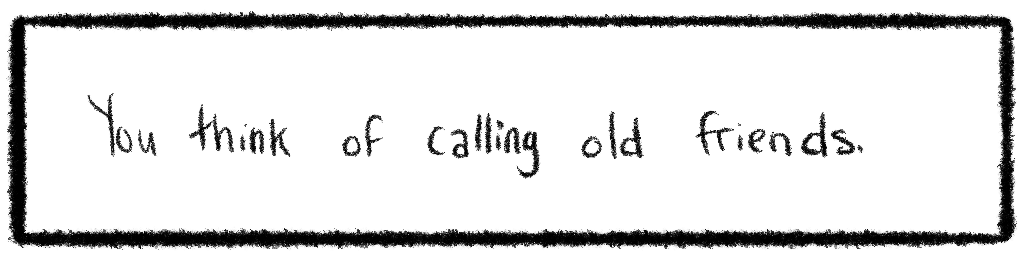 You think of calling old friends.